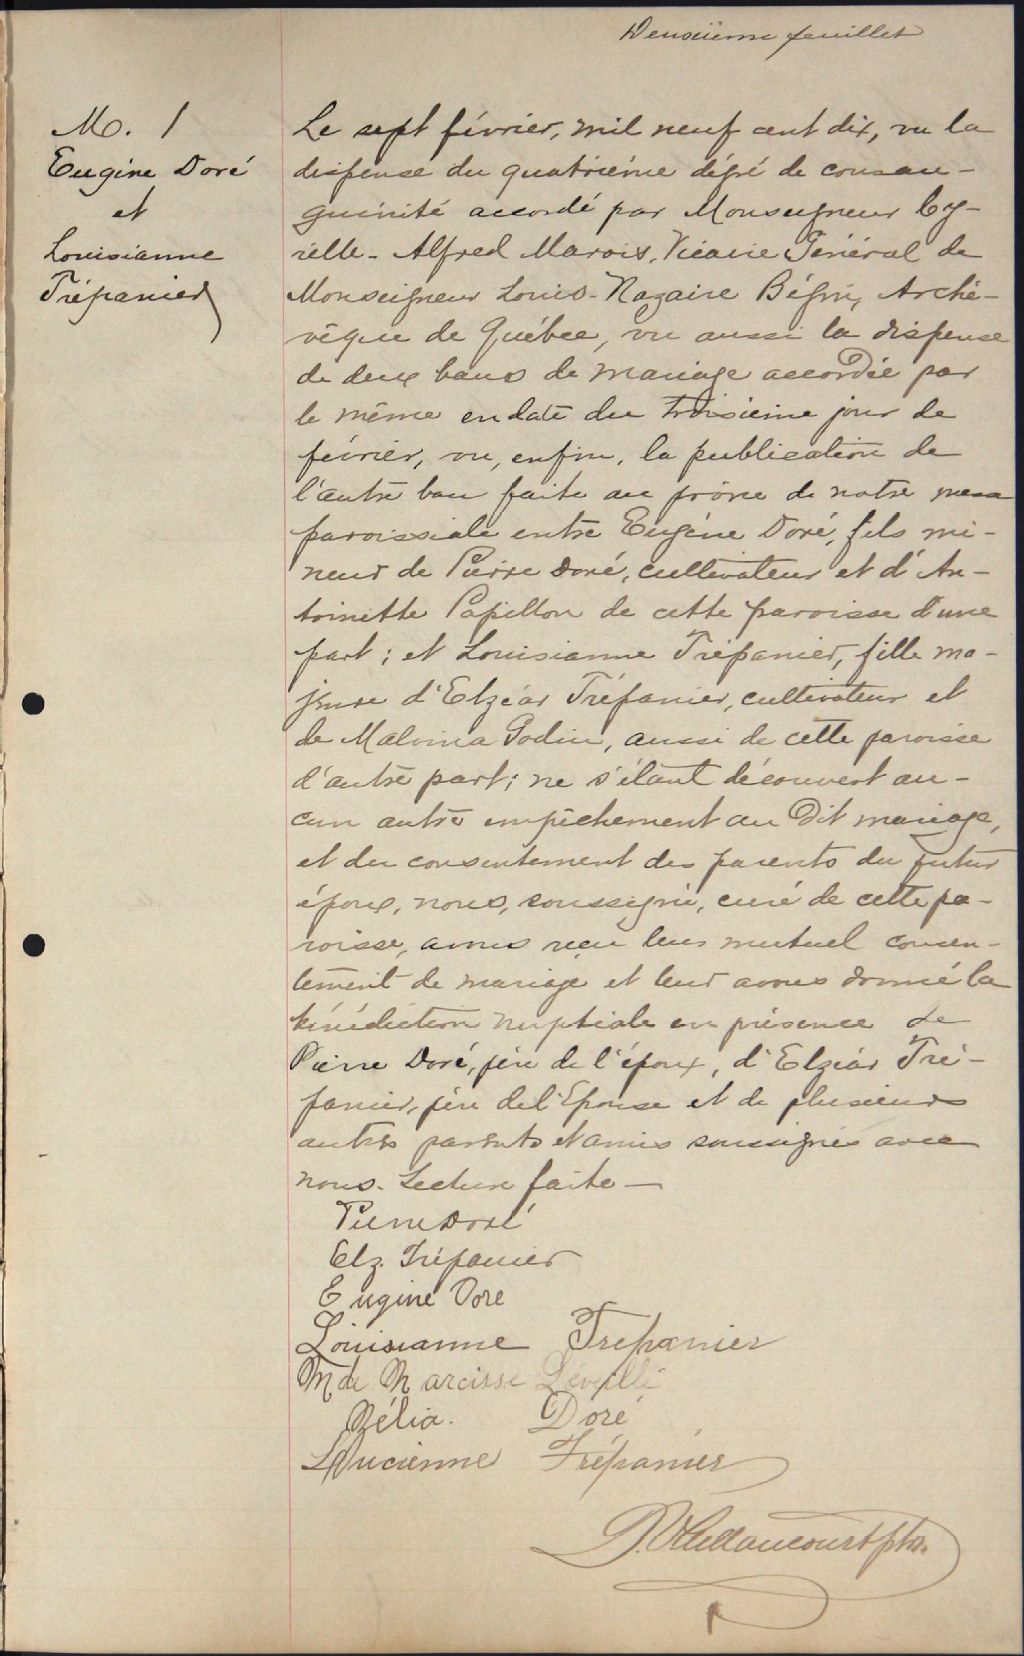 Deuxième feuillet
M. 1
Eugène Doré
et
Louisianne
Trépanier
Le sept février, mil neuf cent dix, vu la
dispense du quatrième dégré de consan-
guinité accordé par Monseigneur Cy-
rille-Alfred Marois, Vicaire Général de
Monseigneur Louis-Nazaire Bégin, Arche-
vêque de Québec, vu aussi la dispense
de deux bans de mariage accordée par
le même en date du troisième jour de
février, vu, enfin, la publication de
l'autre ban faite au prône de notre messe
paroissiale entre Eugène Doré, fils mi-
neur de Pierre Doré, cultivateur et d'An-
toinette Papillon de cette paroisse d'une
part; et Louisianne Trépanier, fille ma-
jeure d'Elzéar Trépanier, cultivateur et
de Malvina Godin, aussi de cette paroisse
d'autre part; ne s'étant découvert au-
cun autre empêchement au dit mariage,
et du consentement des parents du futur
époux, nous, soussigné, curé de cette pa-
roisse, avons reçu leur mutuel consen-
tement de mariage et leur avons donné la
bénédiction nuptiale en présence de
Pierre Doré, père de l'époux, d'Elzéar Tré-
panier, père de l'Epouse et de plusieurs
autres parents et amis soussignés avec
nous. Lecture faite —
Pierre Doré
Elz. Trépanier
Eugène Dore
Louisianne Trepanier
Mde Narcisse Léveillé
Délia. Doré
Lucienne Trépanier
D. Guillancourt ptre.